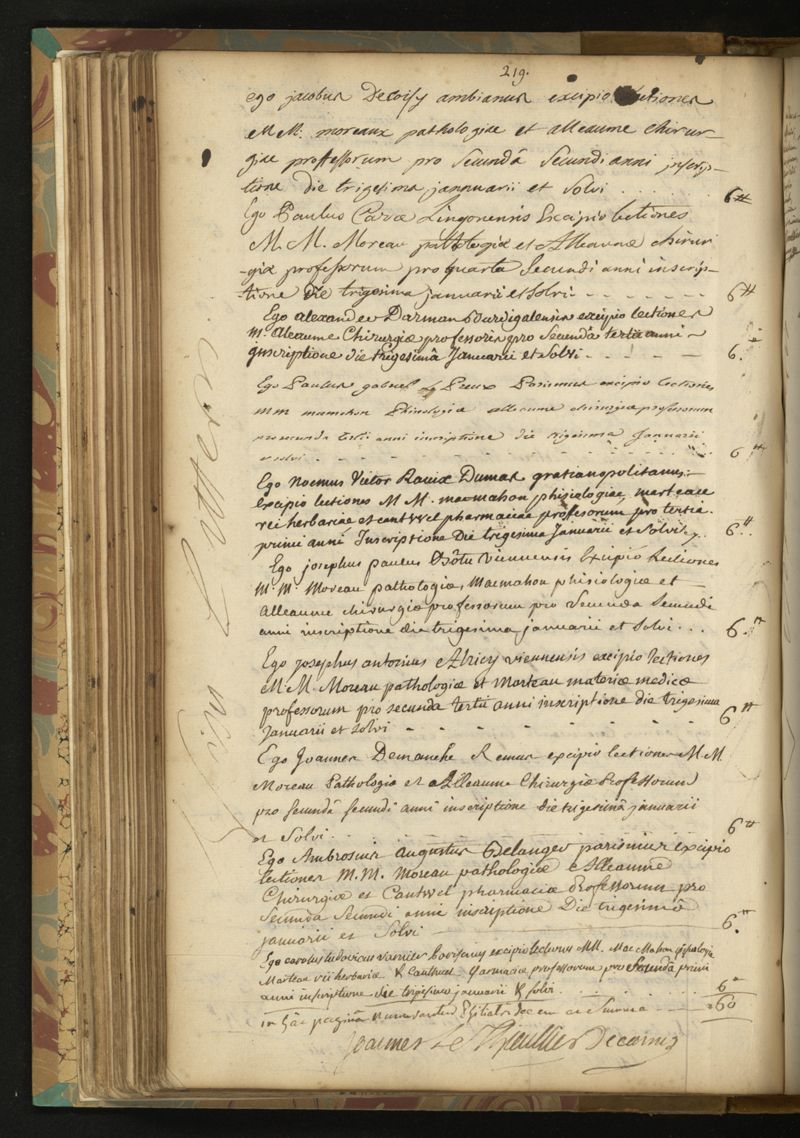 219.
ego jacobus Decoisy ambianus excipio lectiones
MM. moreaux pathologiæ et alleaume chirur-
giæ proffessorum pro secundâ secundi anni inscrip-
tione die trigesima jannuarii et solvi . . . . 6#
Ego Paulus Lingonensis Excipio lectiones
M. M. Moreau pathologiæ et Alleaume chirur
-giæ professorum pro quarta secundi anni inscrip-
-tione Die trigesima januarii et solvi - - - - - - - 6#
Ego alexander Darman Burdigalensis excipio lectiones
M. Aleaume Chirurgiæ professoris pro secundâ tertii anni
inscriptione die trigesimâ Januarii et solvi - - - - - 6.#
Ego Paulus gabriel le Preux Parisinus excipio lectiones
mm mamahon alleaume chirurgiæ professorum
pro secunda tertii anni inscriptione die trigesima Januarii
et solvi - - - - - - - - - 6#
Ego Noemus Victor Dumas gratianopolitanus
Excipio lectiones M M. macmahon phisiologiae, marteau
rei herbariae et cantwel pharmaciae proffesorum pro tertia
primi anni Inscriptione Die trigesima Januarii et solvi 6.#
Ego josephus paulus viennensis Excipio Lectiones
M. M. Moreau pathologiæ, Macmahon phisiologiæ et
Alleaume chirurgiæ professorum pro Secunda Secundi
anni inscriptione die trigesima januarii et solvi . . . 6.#
Ego Josephus antonius Alricy viennensis excipio lectiones
MM. Moreau pathologiæ et Marteau materiæ medicæ
professorum pro secunda tertii anni inscriptione die trigesima
Januarii et solvi - - - - - - - 6#
Ego Joannes Demanche Remus excipio lectiones MM
Moreau Pathologiæ et Alleaume Chirurgiæ Professorum
pro secundâ secundi anni inscriptione die trigesimâ januarii
et Solvi . . . . . . . 6#
Ego Ambrosius Augustus Belanger parisinus excipio
lectiones M.M. Moreau pathologiæ Alleaume
Chirurgiæ et Cantwel pharmaciæ Professorum pro
Secunda Secundi anni inscriptione Die trigesimâ
januarii et Solvi - 6.#
Ego carolus ludovicus varnier excipio lectiones MM. Mac Mahon
Marteau rei herbariæ & Canthuel farmaciæ professorum pro secunda primi
anni inscriptione die trigesima januarii & solvi . . . . 6#
in hâc paginâ decem ac Summa - - - 60
Joannes Le Thieullier Decanus